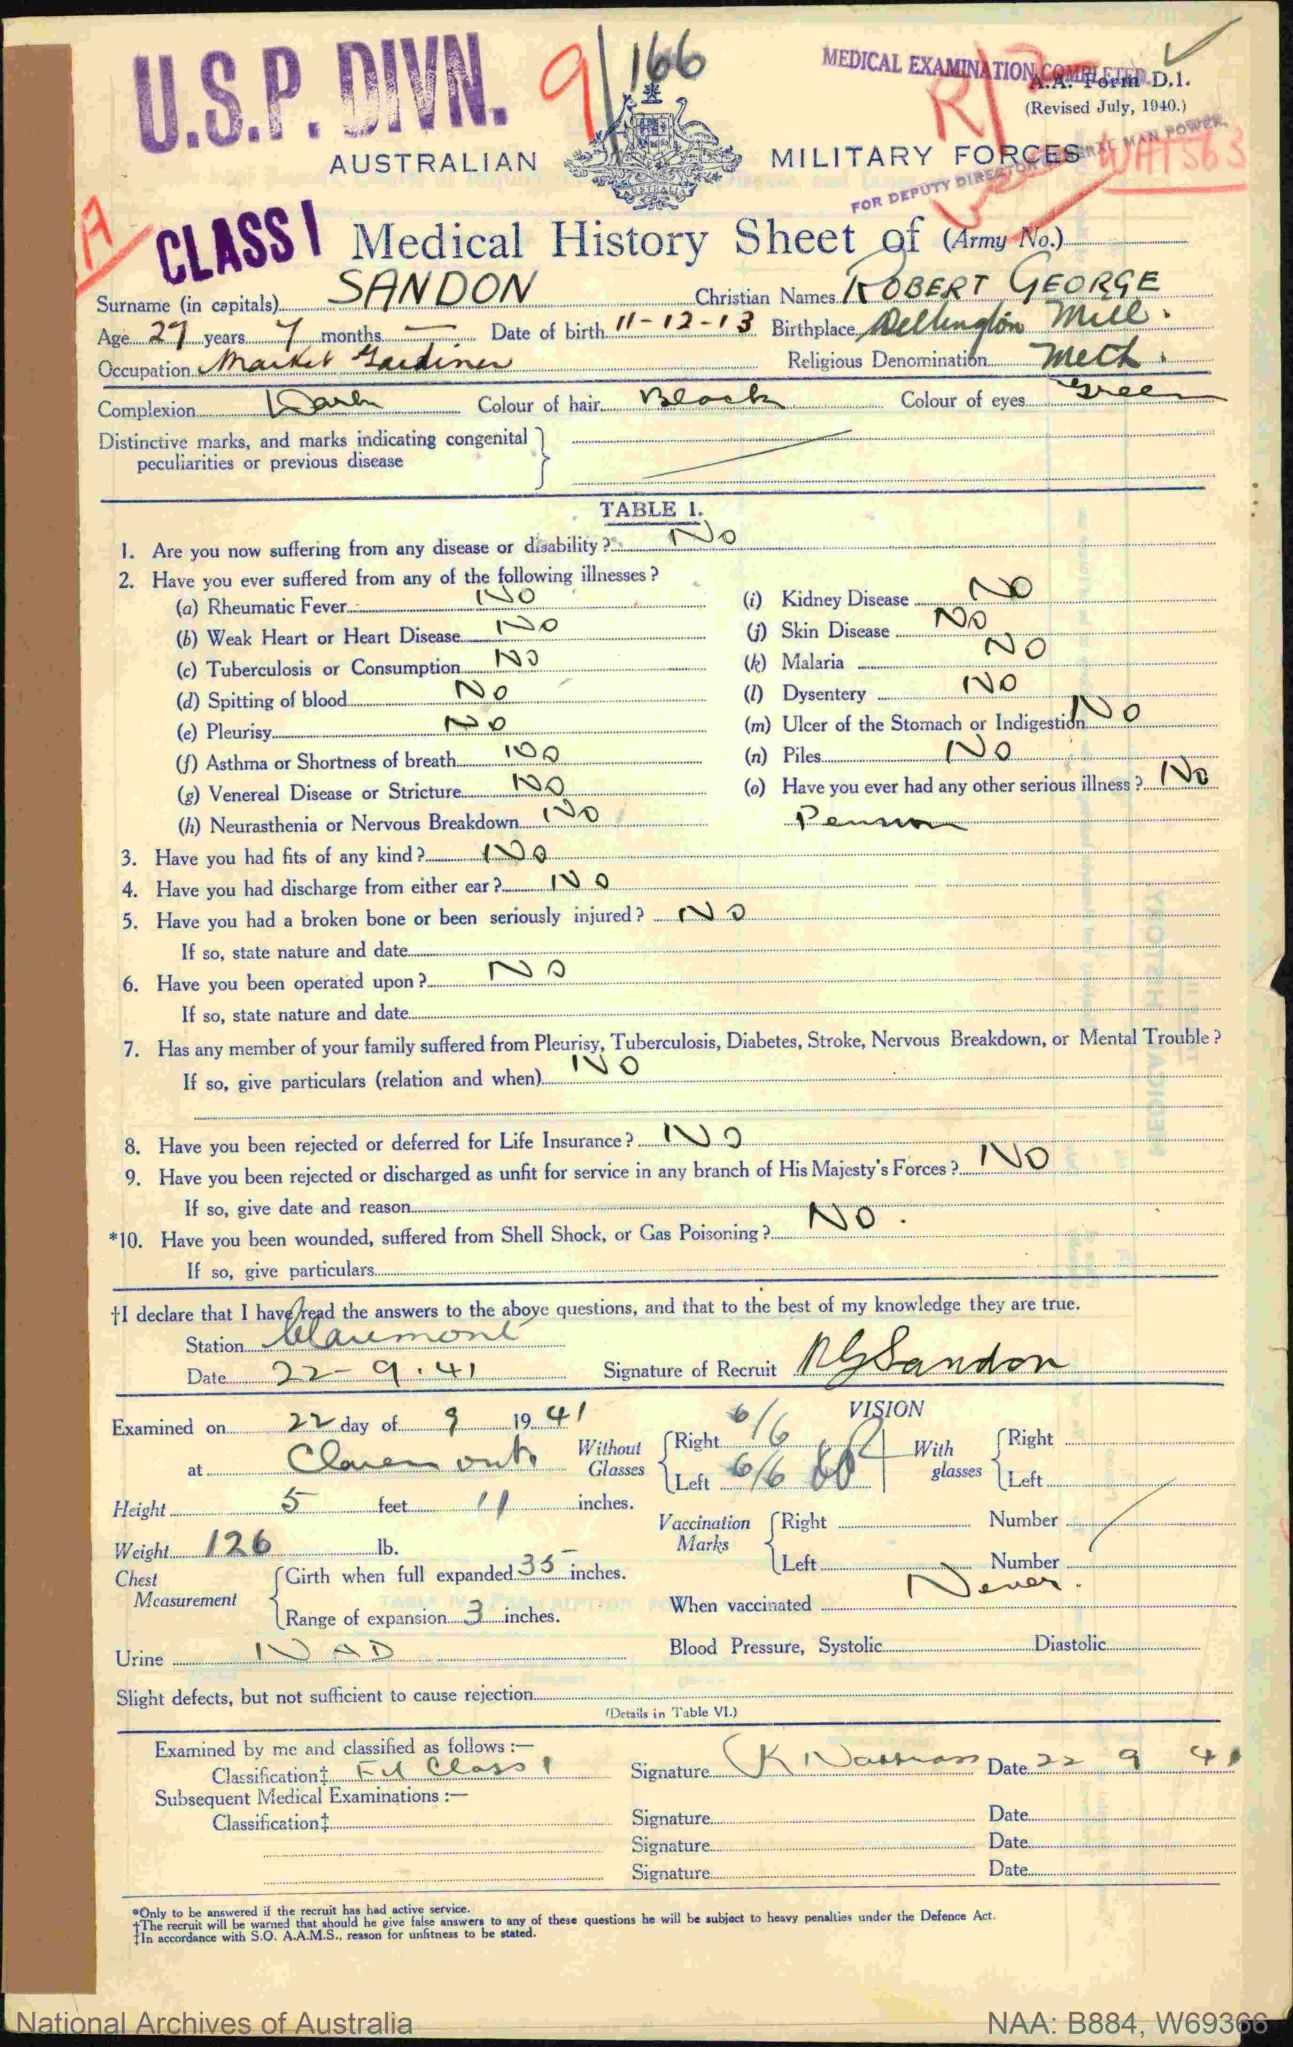 U.S.P. DIVN.
9/166
MEDICAL EXAMINATION COMPLETED
A.A. Form D.1.
(Revised July, 1940.)
AUSTRALIAN MILITARY FORCES
AUSTRALIA
FOR DEPUTY DIRECTOR GENERAL MAN POWER.
A
CLASS I
Medical History Sheet of (Army No.)
Surname (in capitals) SANDON Christian Names ROBERT GEORGE
Age 27 years 7 months — Date of birth 11-12-13 Birthplace Mill.
Occupation Market Gardiner Religious Denomination Meth.
Complexion Dark Colour of hair Black Colour of eyes Green
Distinctive marks, and marks indicating congenital
peculiarities or previous disease
TABLE 1.
1. Are you now suffering from any disease or disability? No
2. Have you ever suffered from any of the following illnesses?
(a) Rheumatic Fever No
(b) Weak Heart or Heart Disease No
(c) Tuberculosis or Consumption No
(d) Spitting of blood No
(e) Pleurisy No
(f) Asthma or Shortness of breath No
(g) Venereal Disease or Stricture No
(h) Neurasthenia or Nervous Breakdown No
(i) Kidney Disease No
(j) Skin Disease No
(k) Malaria No
(l) Dysentery No
(m) Ulcer of the Stomach or Indigestion No
(n) Piles No
(o) Have you ever had any other serious illness? No
3. Have you had fits of any kind? No
4. Have you had discharge from either ear? No
5. Have you had a broken bone or been seriously injured? No
If so, state nature and date
6. Have you been operated upon? No
If so, state nature and date
7. Has any member of your family suffered from Pleurisy, Tuberculosis, Diabetes, Stroke, Nervous Breakdown, or Mental Trouble?
If so, give particulars (relation and when) No
8. Have you been rejected or deferred for Life Insurance? No
9. Have you been rejected or discharged as unfit for service in any branch of His Majesty's Forces? No
If so, give date and reason
*10. Have you been wounded, suffered from Shell Shock, or Gas Poisoning? No.
If so, give particulars
†I declare that I have read the answers to the above questions, and that to the best of my knowledge they are true.
Station Claremont
Date 22-9.41 Signature of Recruit RGSandon
Examined on 22 day of 9 1941
at Claremont
Height 5 feet 11 inches.
Weight 126 lb.
Chest Measurement
Girth when full expanded 35 inches.
Range of expansion 3 inches.
Urine NAD
VISION
Without Glasses Right 6/6 With glasses Right
Left 6/6 Left
Vaccination Marks Right Number
Left Number
When vaccinated Never.
Blood Pressure, Systolic Diastolic
Slight defects, but not sufficient to cause rejection
(Details in Table VI.)
Examined by me and classified as follows :—
Classification‡ Fit Class 1 Signature Date 22 9 41
Subsequent Medical Examinations :—
Classification‡ Signature Date
Signature Date
Signature Date
*Only to be answered if the recruit has had active service.
†The recruit will be warned that should he give false answers to any of these questions he will be subject to heavy penalties under the Defence Act.
‡In accordance with S.O. A.A.M.S., reason for unfitness to be stated.
National Archives of Australia NAA: B884, W69366